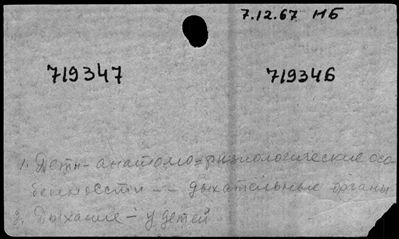 7.12.67 МБ
719347 719346
1. Дети - анатомо-физиологические осо
бенности -- дыхательные органы
2. Дыхание - у детей